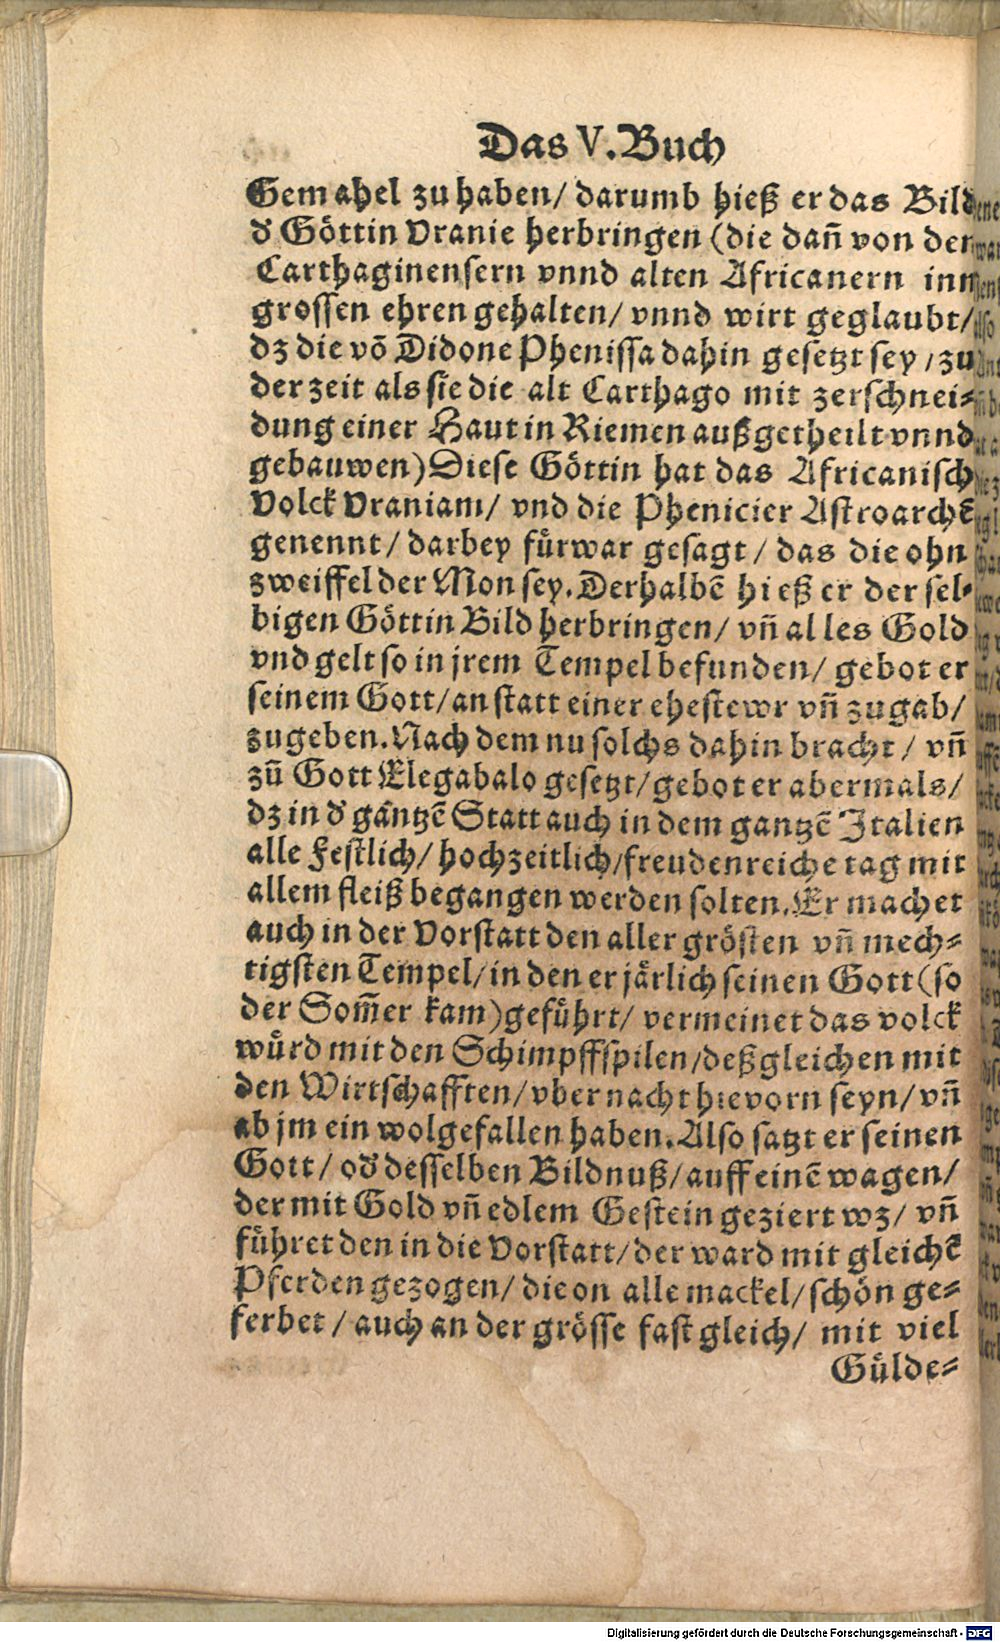 Das V. Buch
Gemahel zu haben/ darumb hieß er das Bild
d' Göttin Vranie herbringen (die dañ von den
Carthaginensern vnnd alten Africanern inn
grossen ehren gehalten/ vnnd wirt geglaubt/
dz die vō Didone Phenissa dahin gesetzt sey/ zu
der zeit als sie die alt Carthago mit zerschnei⸗
dung einer Haut in Riemen außgetheilt vnnd
gebauwen) Diese Göttin hat das Africanisch
Volck Vraniam/ vnd die Phenicier Astroarchē
genennt/ darbey fürwar gesagt/ das die ohn
zweiffel der Mon sey. Derhalbē hieß er der sel⸗
bigen Göttin Bild herbringen/ vñ alles Gold
vnd gelt so in jrem Tempel befunden/ gebot er
seinem Gott/ an statt einer ehestewr vñ zugab/
zugeben. Nach dem nu solchs dahin bracht/ vñ
zū Gott Elegabalo gesetzt/ gebot er abermals/
dz in d' gantzē Statt auch in dem gantzē Italien
alle Festlich/ hochzeitlich/ freudenreiche tag mit
allem fleiß begangen werden solten. Er machet
auch in der Vorstatt den aller grösten vñ mech⸗
tigsten Tempel/ in den er järlich seinen Gott (so
der Som̄er kam) geführt/ vermeinet das volck
würd mit den Schimpffspilen/ deßgleichen mit
den Wirtschafften/ vber nacht hievorn seyn/ vñ
ab jm ein wolgefallen haben. Also satzt er seinen
Gott/ od' desselben Bildnuß/ auff einē wagen/
der mit Gold vñ edlem Gestein geziert wz/ vñ
führet den in die Vorstatt/ der ward mit gleichē
Pferden gezogen/ die on alle mackel/ schön ge⸗
ferbet/ auch an der grösse fast gleich/ mit viel
Gülde⸗
Digitalisierung gefördert durch die Deutsche Forschungsgemeinschaft - DFG